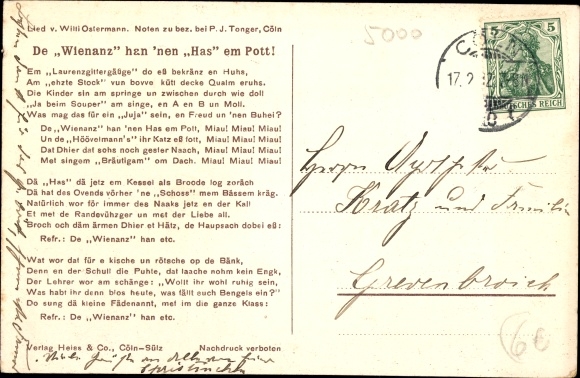 Lied v. Willi Ostermann. Noten zu bez. bei P. J. Tonger, Cöln
De „Wienanz" han 'nen „Has" em Pott!
Em „Laurenzgittergäßge" do eß bekränz en Huhs,
Am „ehzte Stock" vun bovve kütt decke Qualm eruhs.
Die Kinder sin am springe un zwischen durch wie doll
„Ja beim Souper" am singe, en A en B un Moll.
Was mag das für ein „Juja" sein, en Freud un 'nen Buhei?
De „Wienanz" han 'nen Has em Pott, Miau! Miau! Miau!
Un de „Höövelmann's" ihr Katz eß fott, Miau! Miau! Miau!
Dat Dhier dat sohs noch gester Naach, Miau! Miau! Miau!
Met singem „Bräutigam" om Dach. Miau! Miau! Miau!
Dä „Has" dä jetz em Kessel als Broode log zoräch
Dä hat des Ovends vörher 'ne „Schoss" mem Bässem kräg.
Natürlich wor för immer des Naaks jetz en der Kall
Et met de Randevühzger un met der Liebe all.
Broch och däm ärmen Dhier et Hätz, de Haupsach dobei eß:
Refr.: De „Wienanz" han etc.
Wat wor dat für e kische un rötsche op de Bänk,
Denn en der Schull die Puhte, dat laache nohm kein Engk,
Der Lehrer wor am schänge: „Wollt ihr wohl ruhig sein,
Was habt ihr denn blos heute, was fällt euch Bengels ein?"
Do sung dä kleine Fädenannt, met im die ganze Klass:
Refr.: De „Wienanz" han etc.
Verlag Heiss & Co., Cöln-Sülz Nachdruck verboten
5000
CÖLN
17. 2.
5
DEUTSCHES REICH
Herrn
Kratz und Familie
Grevenbroich